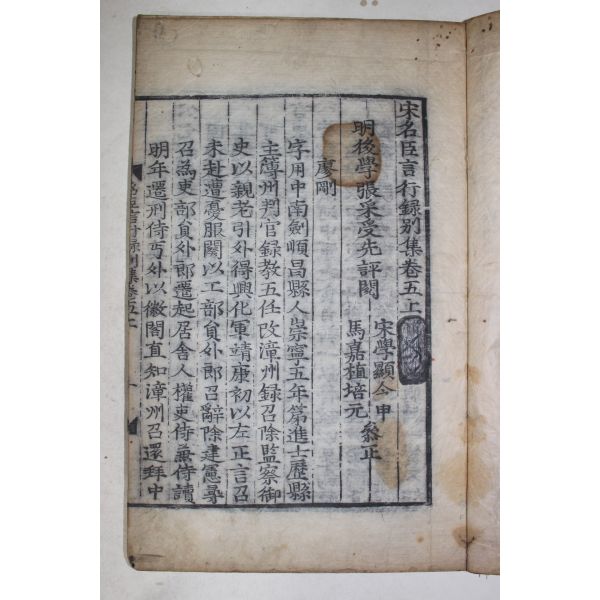 宋名臣言行録别集卷五上
明後學張采受先評閱
宋學顯令申
馬嘉植培元
叅正
廖剛
字用中南劍順昌縣人崇寧五年第進士歷縣
主簿州判官録教五任改漳州録召除監察御
史以親老引外得興化軍靖康初以左正言召
未赴遭憂服闋以工部負外郎召辭除建憲尋
召為吏部負外郎遷起居舍人權吏侍兼侍讀
明年遷刑侍丐外以徽閣直知漳州召還拜中
名臣言行録别集卷五上